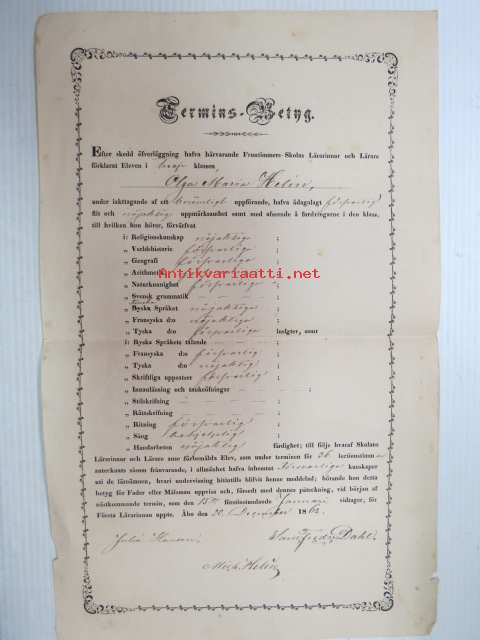 Termins-Betyg.
Efter skedd öfverläggning hafva härvarande Fruntimmers-Skolas Lärarinnor och Lärare
förklarat Eleven i klassen
Olga Maria Helin,
under iakttagande af ett berömligt uppförande, hafva ådagalagt försvarlig
flit och nöjaktig uppmärksamhet samt med afseende å fordringarne i den klass,
till hvilken hon hörer, förvärfvat
i: Religionskunskap nöjaktige ;
„ Verldshistorie försvarlige ;
„ Geografi försvarlige ;
„ Arithmetik
Antikvariaatti.net
„ Naturkunnighet försvarlige ;
„ Svensk grammatik — — — ;
„ Ryska Språket nöjaktige ;
„ Fransyska d:o nöjaktige ;
„ Tyska d:o försvarlige insigter, samt
i: Ryska Språkets talande — — — ;
„ Fransyska d:o försvarlig ;
„ Tyska d:o nöjaktig ;
„ Skriftliga uppsatser försvarlig ;
„ Innanläsning och tankeöfningar — — ;
„ Stilskrifning — — — ;
„ Rättskrifning — — — ;
„ Ritning försvarlig ;
„ Sång ;
„ Handarbeten nöjaktig färdighet; till följe hvaraf Skolans
Lärarinnor och Lärare anse förbemälda Elev, som under terminen för 36 lärotimmar
antecknats såsom frånvarande, i allmänhet hafva inhemtat försvarlige kunskaper
uti de läroämnen, hvari undervisning hittills blifvit henne meddelad; börande hon detta
betyg för Fader eller Målsman uppvisa och, försedt med dennes påteckning, vid början af
nästkommande termin, som den 15de instundande Januari vidtager, för
Första Lärarinnan uppte. Åbo den 20 December 1862.
Dahl.
Helin